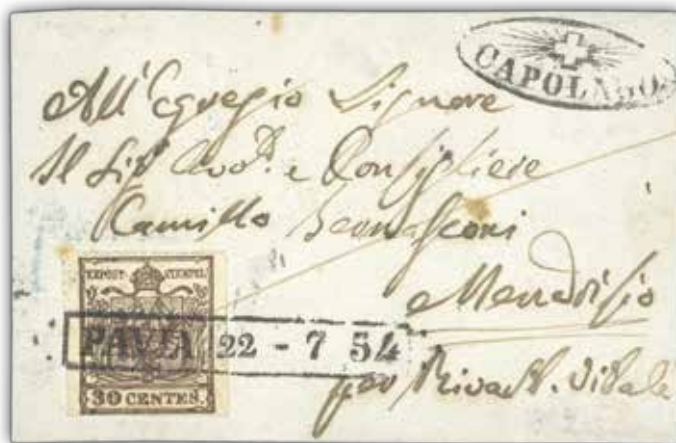 CAPOLAGO
All'Egregio Signore
Il Sigr Avvo. e Consigliere
Camillo Bernasconi
Mendrisio
per Riva S. Vitale
KPOST STEMPEL
PAVIA 22 - 7 54
30 CENTES.